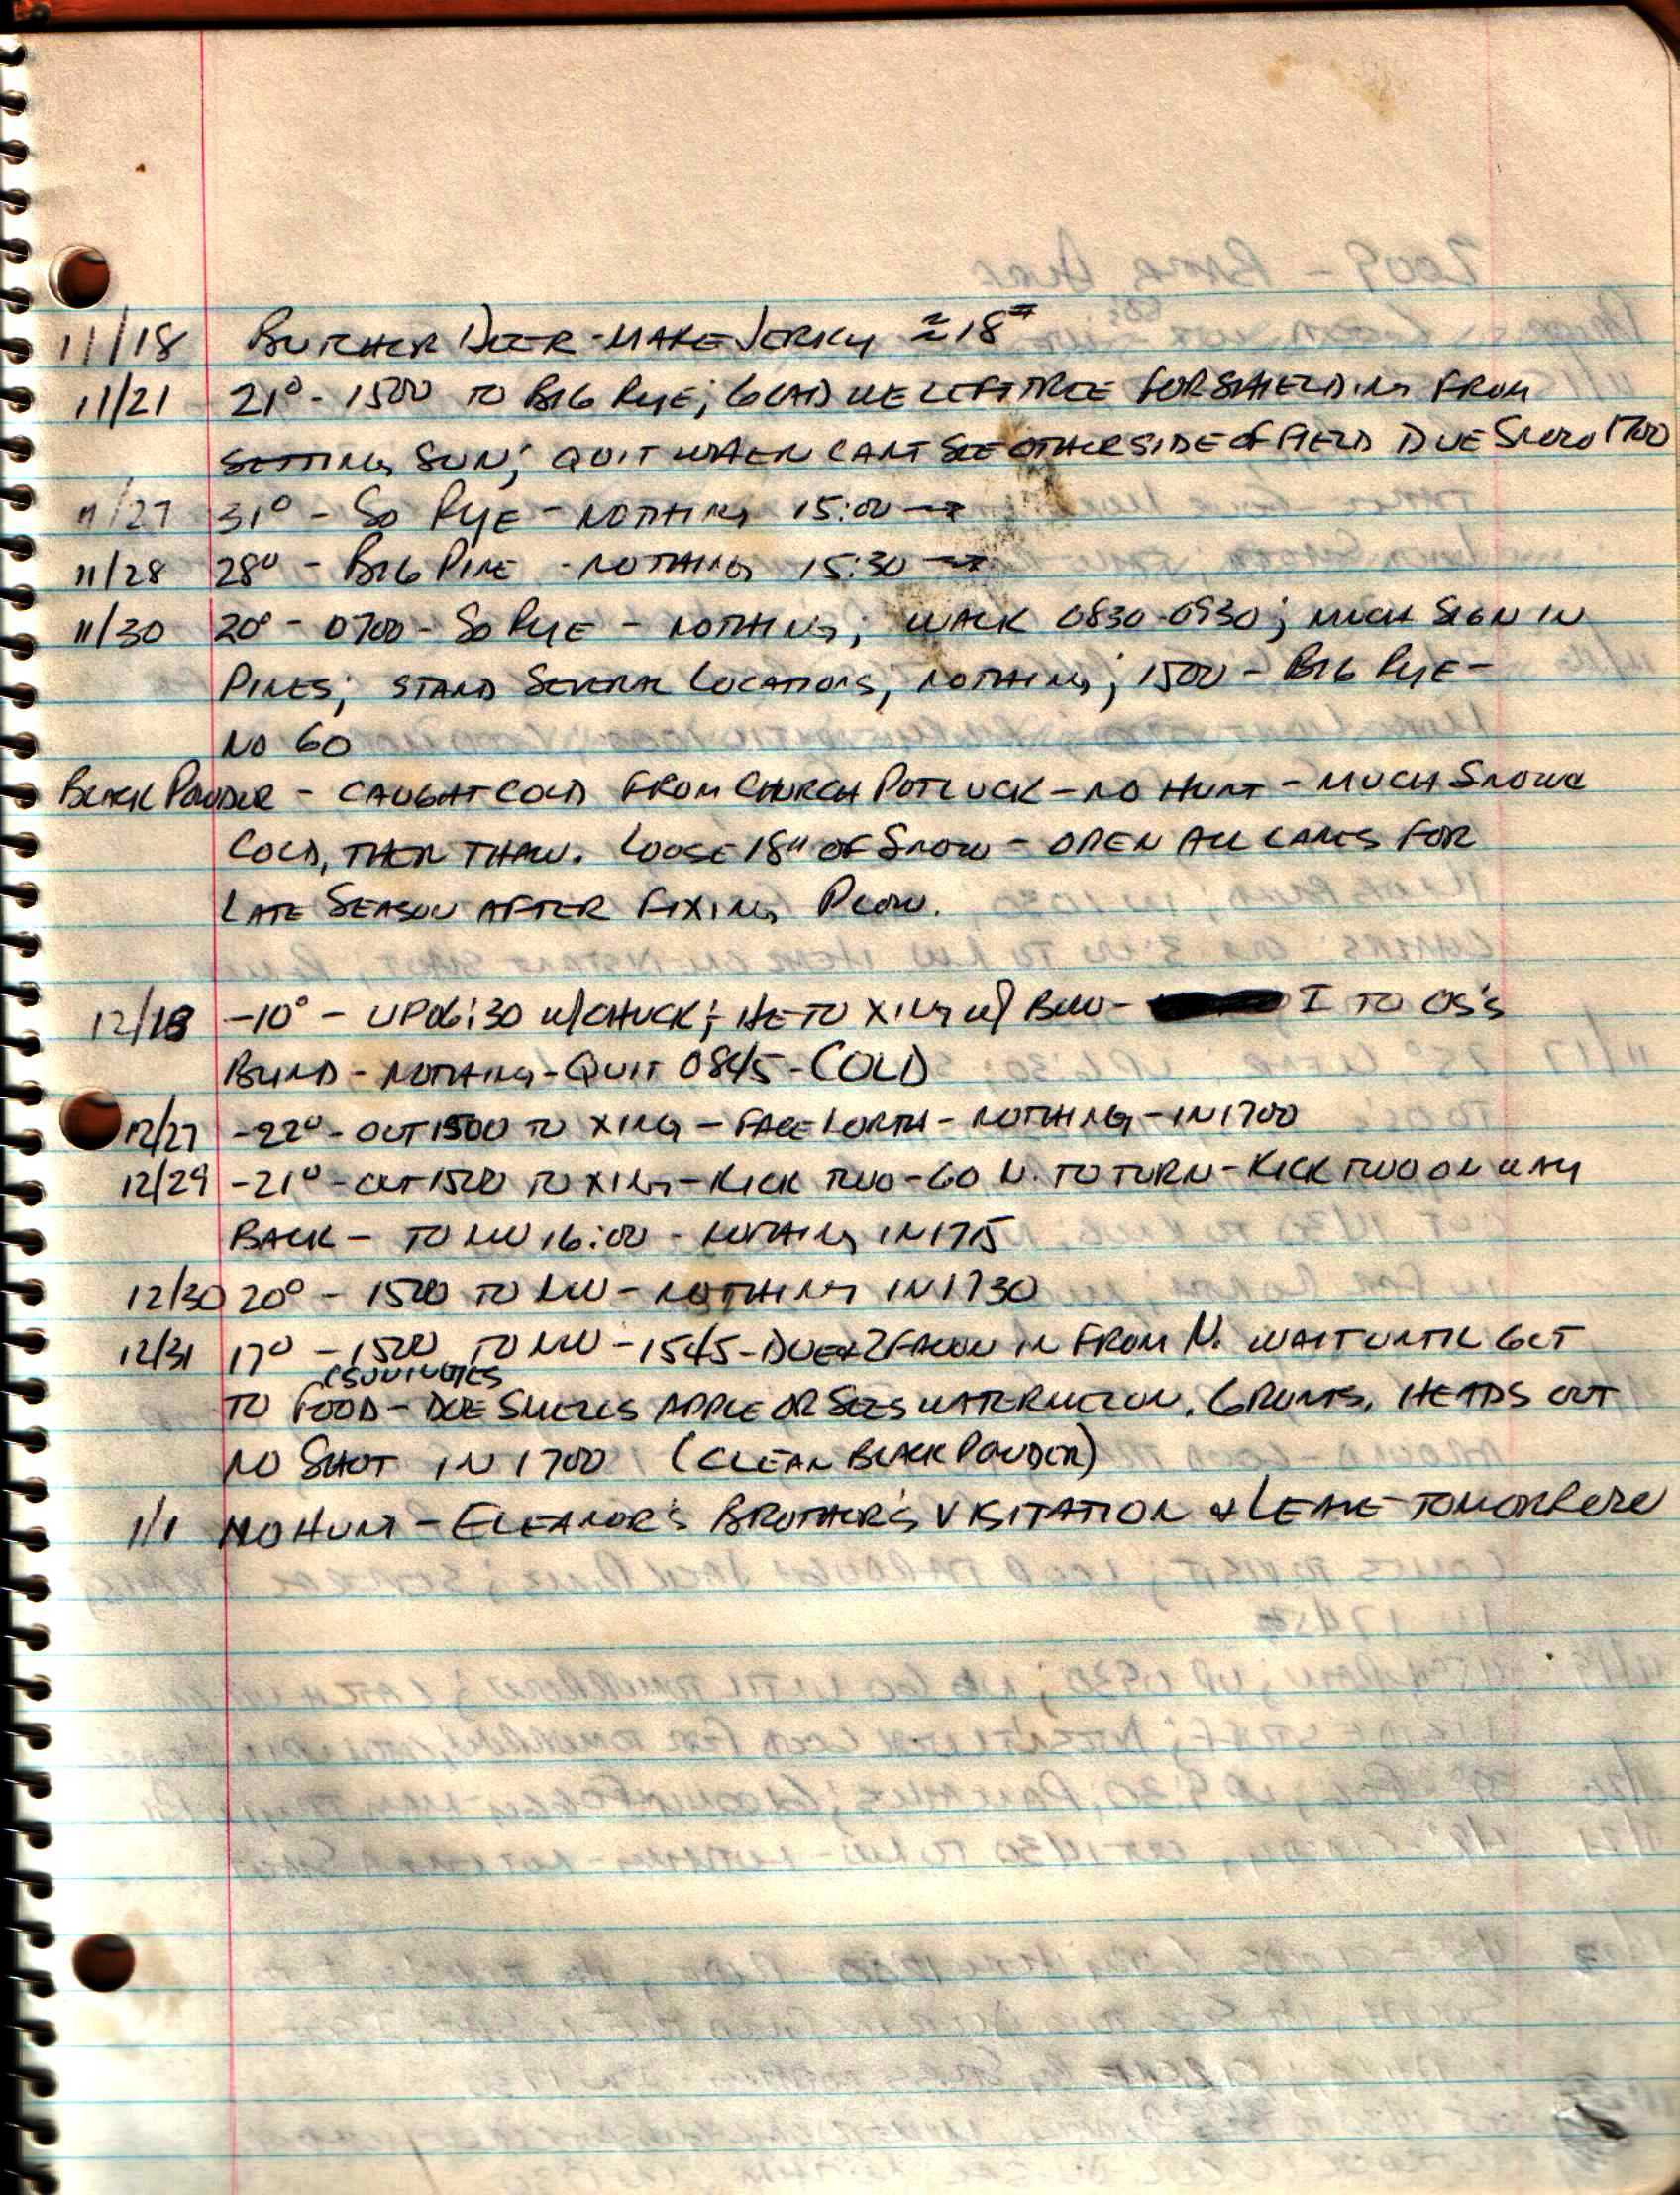 11/18 BUTCHER DEER - MAKE JERKY ≈ 18#
11/21 21° - 1500 TO BIG RYE; GLAD WE LEFT TREE FOR SHIELDING FROM
SETTING SUN; QUIT WHEN CANT SEE OTHER SIDE OF FIELD DUE SNOW 1700
11/27 31° - SO RYE - NOTHING 15:00 →
11/28 28° - BIG PINE - NOTHING 15:30 →
11/30 20° - 0700 - SO RYE - NOTHING; WALK 0830-0930; MUCH SIGN IN
PINES; STAND SEVERAL LOCATIONS, NOTHING; 1500 - BIG RYE -
NO GO
BLACK POWDER - CAUGHT COLD FROM CHURCH POTLUCK - NO HUNT - MUCH SNOW &
COLD, THEN THAW. LOOSE 18" OF SNOW - OPEN ALL LANES FOR
LATE SEASON AFTER FIXING PLOW.
12/18 -10° - UP 06:30 W/CHUCK; HE TO XING W/ BOW - I TO OS'S
BLIND - NOTHING - QUIT 0845 - COLD
12/27 -22° - OUT 1500 TO XING - FACE NORTH - NOTHING - IN 1700
12/29 -21° - OUT 1500 TO XING - KICK TWO - GO N. TO TURN - KICK TWO ON WAY
BACK - TO NW 16:00 - NOTHING IN 1715
12/30 20° - 1500 TO NW - NOTHING IN 1730
12/31 17° - 1500 TO NW - 1545 - DOE & 2 FAWN IN FROM N. WAIT UNTIL GET
TO FOOD - DOE SMELLS APPLE OR SEES WATERMELON, GRUNTS, HEADS OUT
NO SHOT IN 1700 (CLEAN BLACK POWDER)
1/1 NO HUNT - ELEANOR'S BROTHER'S VISITATION & LEAVE TOMORROW